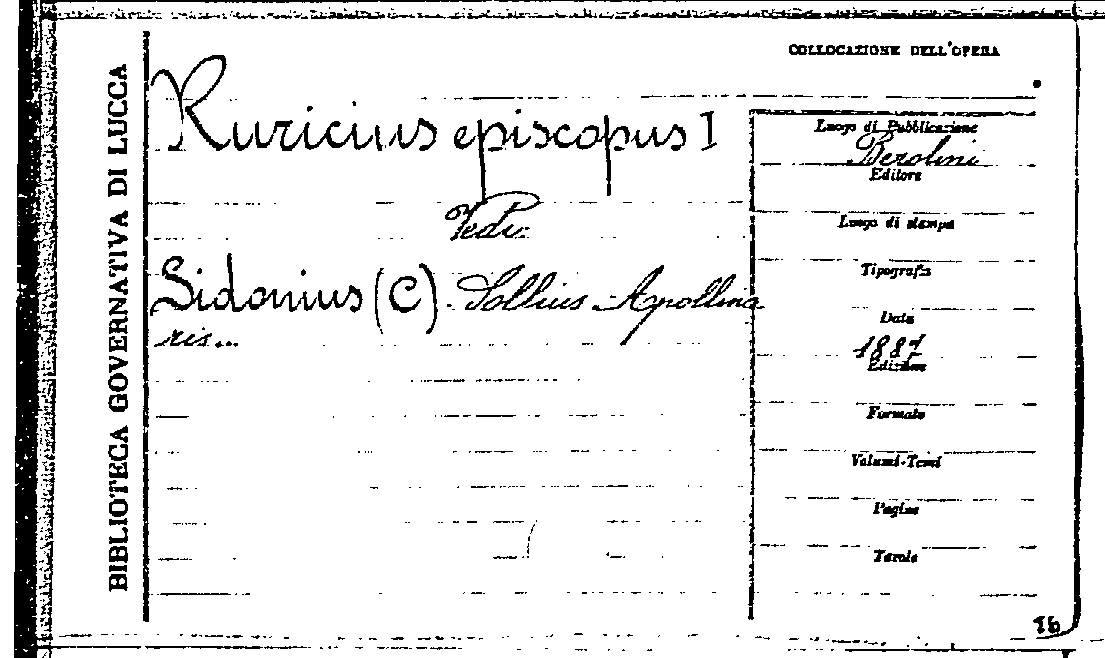 BIBLIOTECA GOVERNATIVA DI LUCCA
COLLOCAZIONE DELL'OPERA
Ruricius episcopus I
Vedi
Sidonius (C). Sollius Apollina
ris...
Luogo di Pubblicazione
Berolini
Editore
Luogo di stampa
Tipografia
Data
1887
Edizione
Formato
Volumi-Tomi
Pagine
Tavole
16